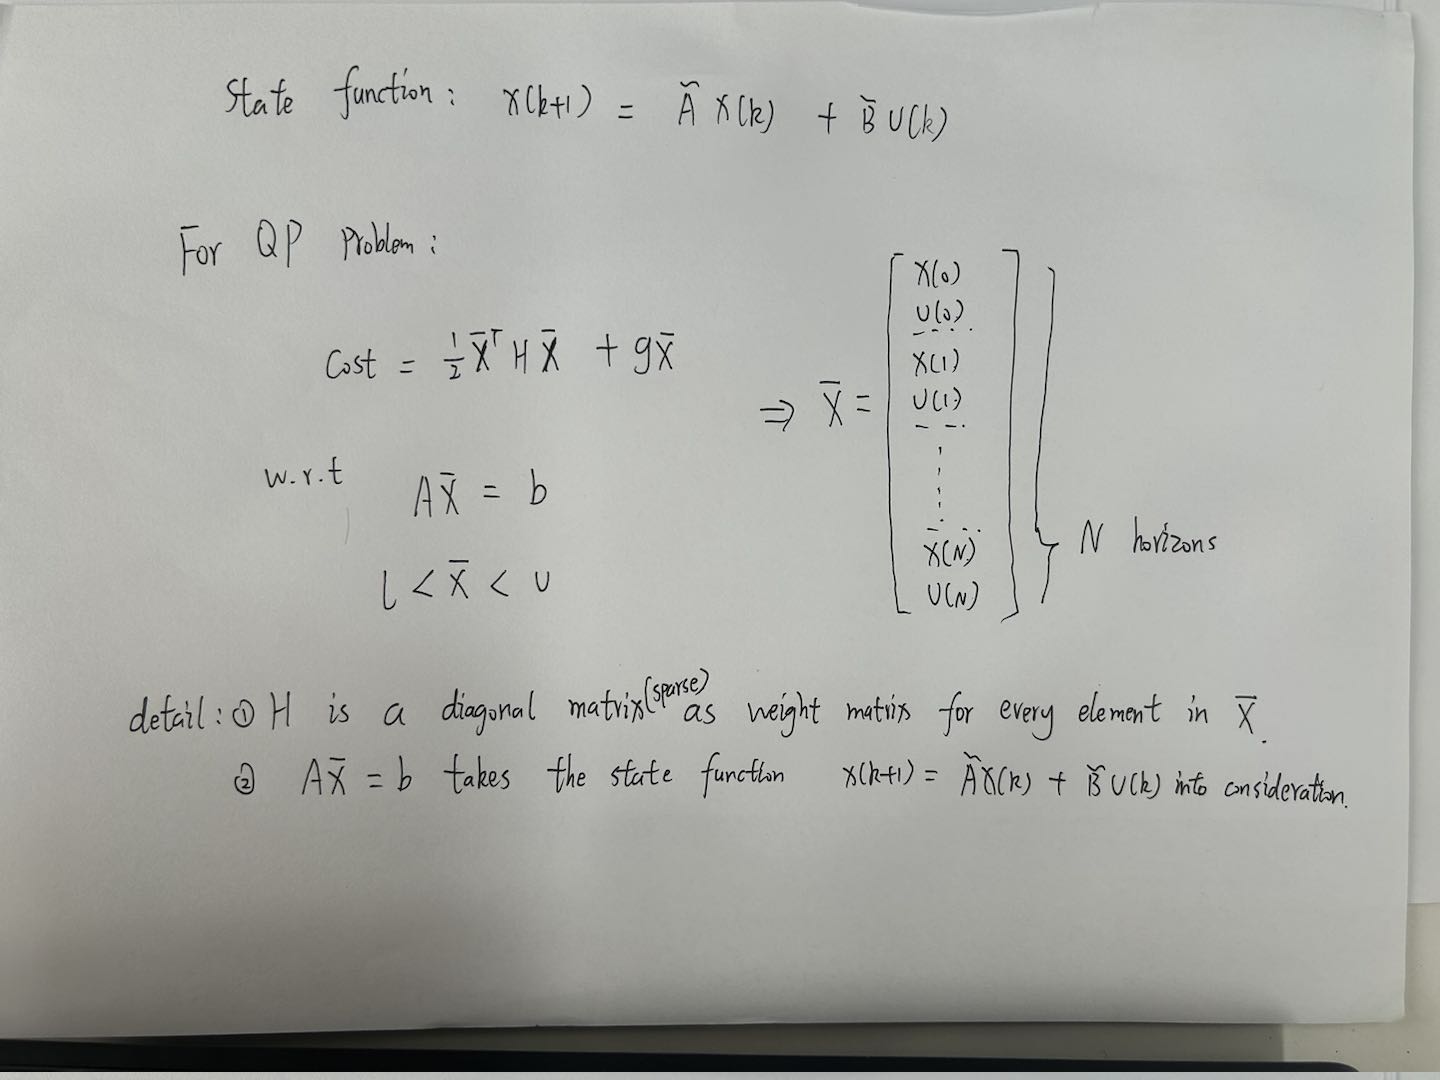 State function: x(k+1) = Ã X(k) + B̃ U(k)
For QP Problem:
Cost = ½ X̄ᵀ H X̄ + g X̄
w.r.t A X̄ = b
l < X̄ < u
⇒ X̄ = [
X(0)
U(0)
X(1)
U(1)
⋮
X(N)
U(N)
] } N horizons
detail: ① H is a diagonal matrix (sparse) as weight matrix for every element in X̄.
② A X̄ = b takes the state function x(k+1) = Ã X(k) + B̃ U(k) into consideration.